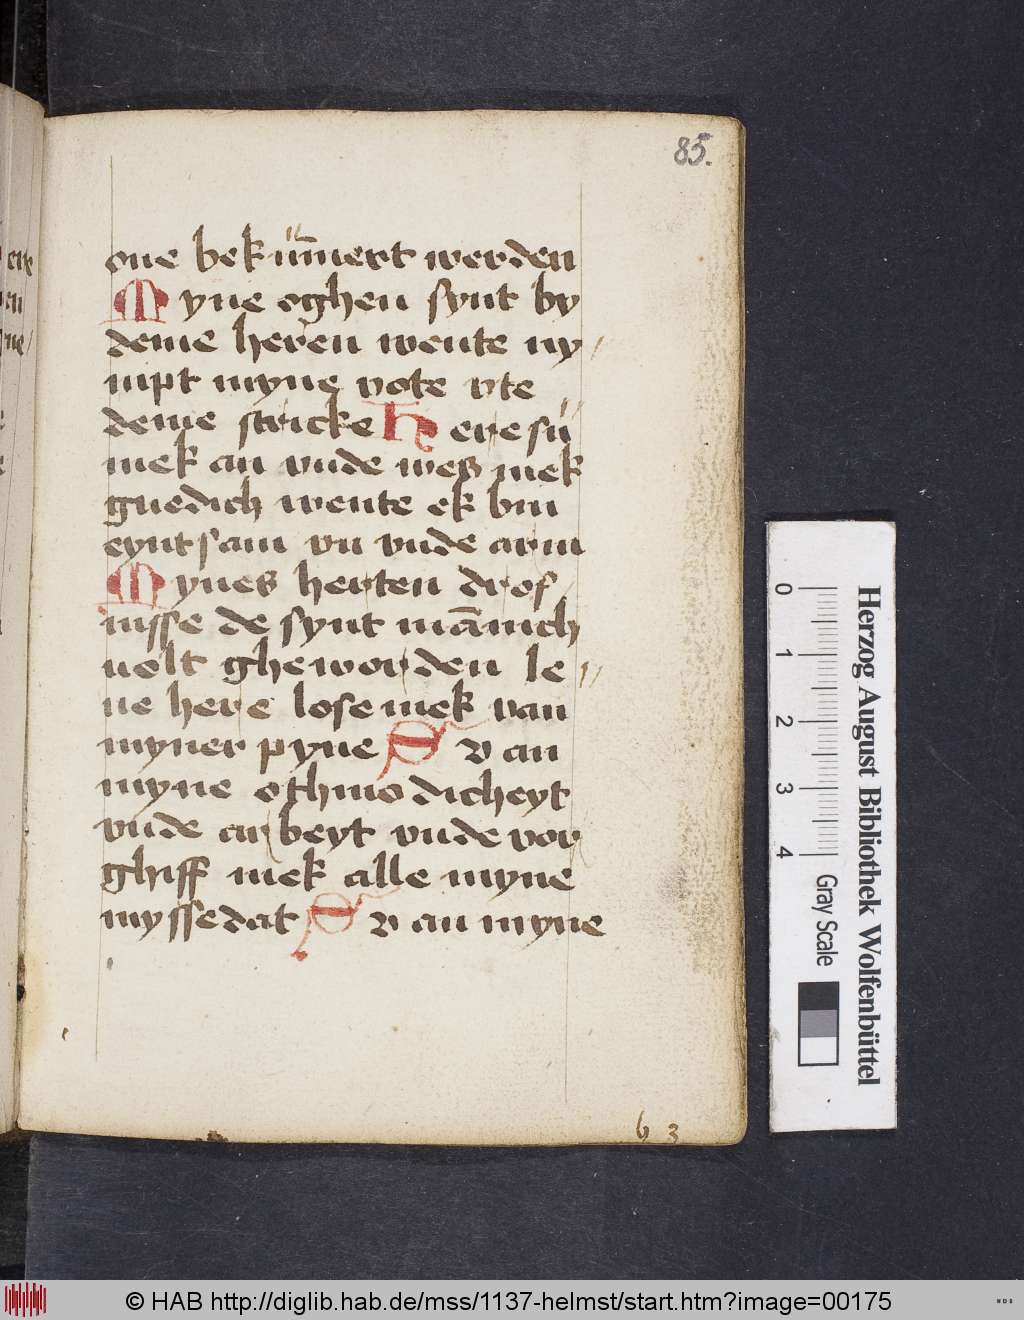 85.
one bekűm̄ert werden
Myne oghen synt by
deme heren wente ny/
mpt myne vote vte
deme stricke Here sű
mek an vnde wes mek
gnedich wente ek bin
eyntsam vn vnde arm
Mynes herten drof/
nisse de synt mānich
uelt gheworden le//
ue here lose mek van
myner pyne S v an
myne othmodicheyt
vnde arbeyt vnde vor
ghiff mek alle myne
myssedat S v an myne
b 3
0 1 2 3 4
Herzog August Bibliothek Wolfenbüttel
Gray Scale
© HAB http://diglib.hab.de/mss/1137-helmst/start.htm?image=00175